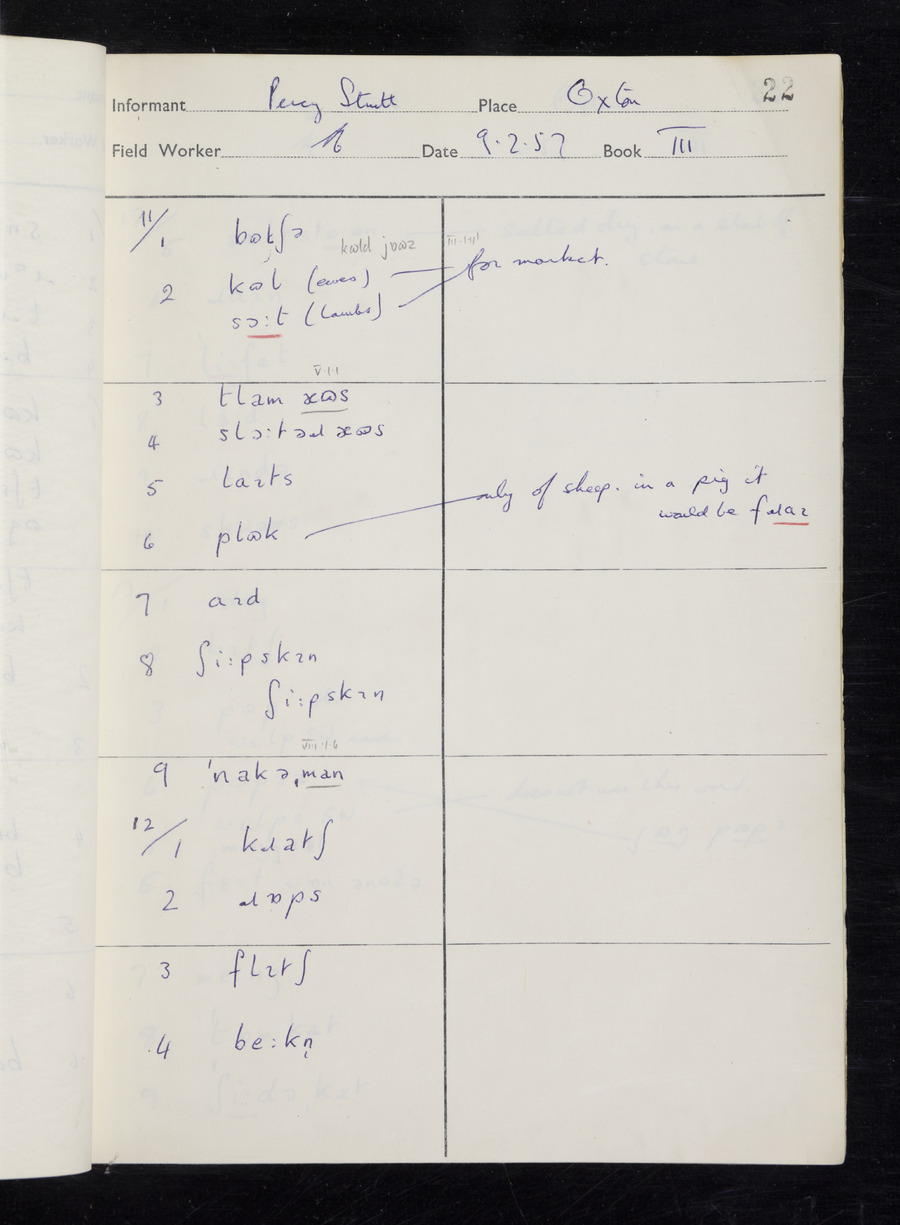 22
Informant Percy Strutt Place Oxton
Field Worker Date 9.2.57 Book III
11/1 bʊtʃə
kʊld jɒʊz III.1.11
2 kʊl (ewes) for market.
sɔ:t (lambs)
V.1.1
3 tlam ʊs
4 slɔ:təɹ ʊs
5 laɪts only of sheep. in a pig it
would be fɹaɪ
6 plʊk
7 aɪd
8 ʃi:pskɪn
ʃi:pskɪn
VIII.1.6
9 ˈnakəˌman
12/1 kɹatʃ
2 ɹɒps
3 flɪtʃ
4 be:kn̩